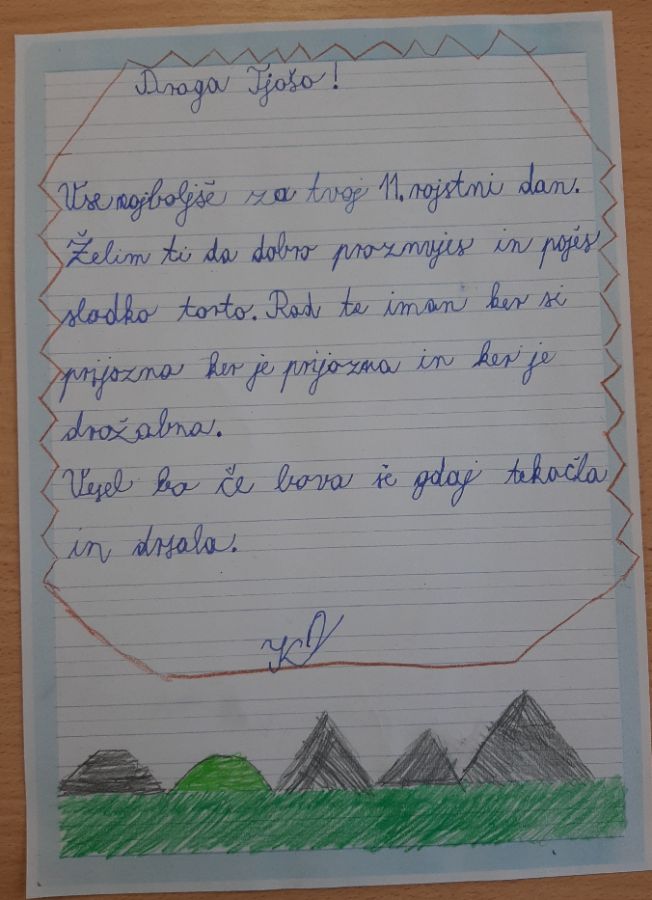 Draga Tjaša!
Vse najboljše za tvoj 11. rojstni dan.
Želim ti da dobro praznujes in poješ
sladko torto. Rad te iman ker si
prijazna ker je prijazna in ker je
dražabna.
Vesel bo če bova še gdaj tekačla
in drsala.
KV